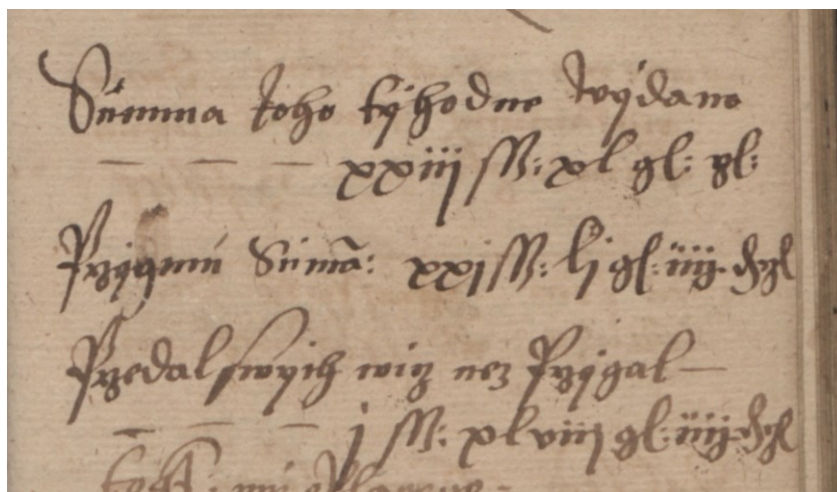 Summa toho tyhodne wydano
— — — xxiij ss: xl gl: gl:
Przygmu Sumā: xxj ss: lj gl: iiij ₰ gl
Przedal swyich wicz nez Przygal —
— — — j ss: xlviij gl: iiij ₰ gl